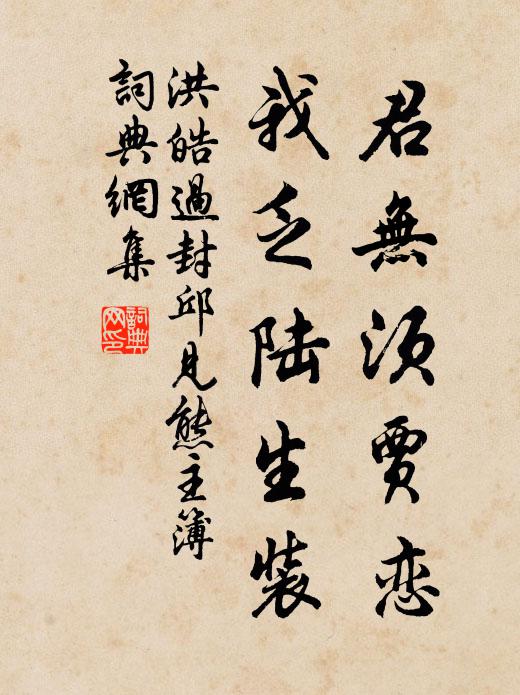 君無須賈恋
我乏陆生裝
洪皓過封邱見熊主簿
詞典網集
詞典
网印